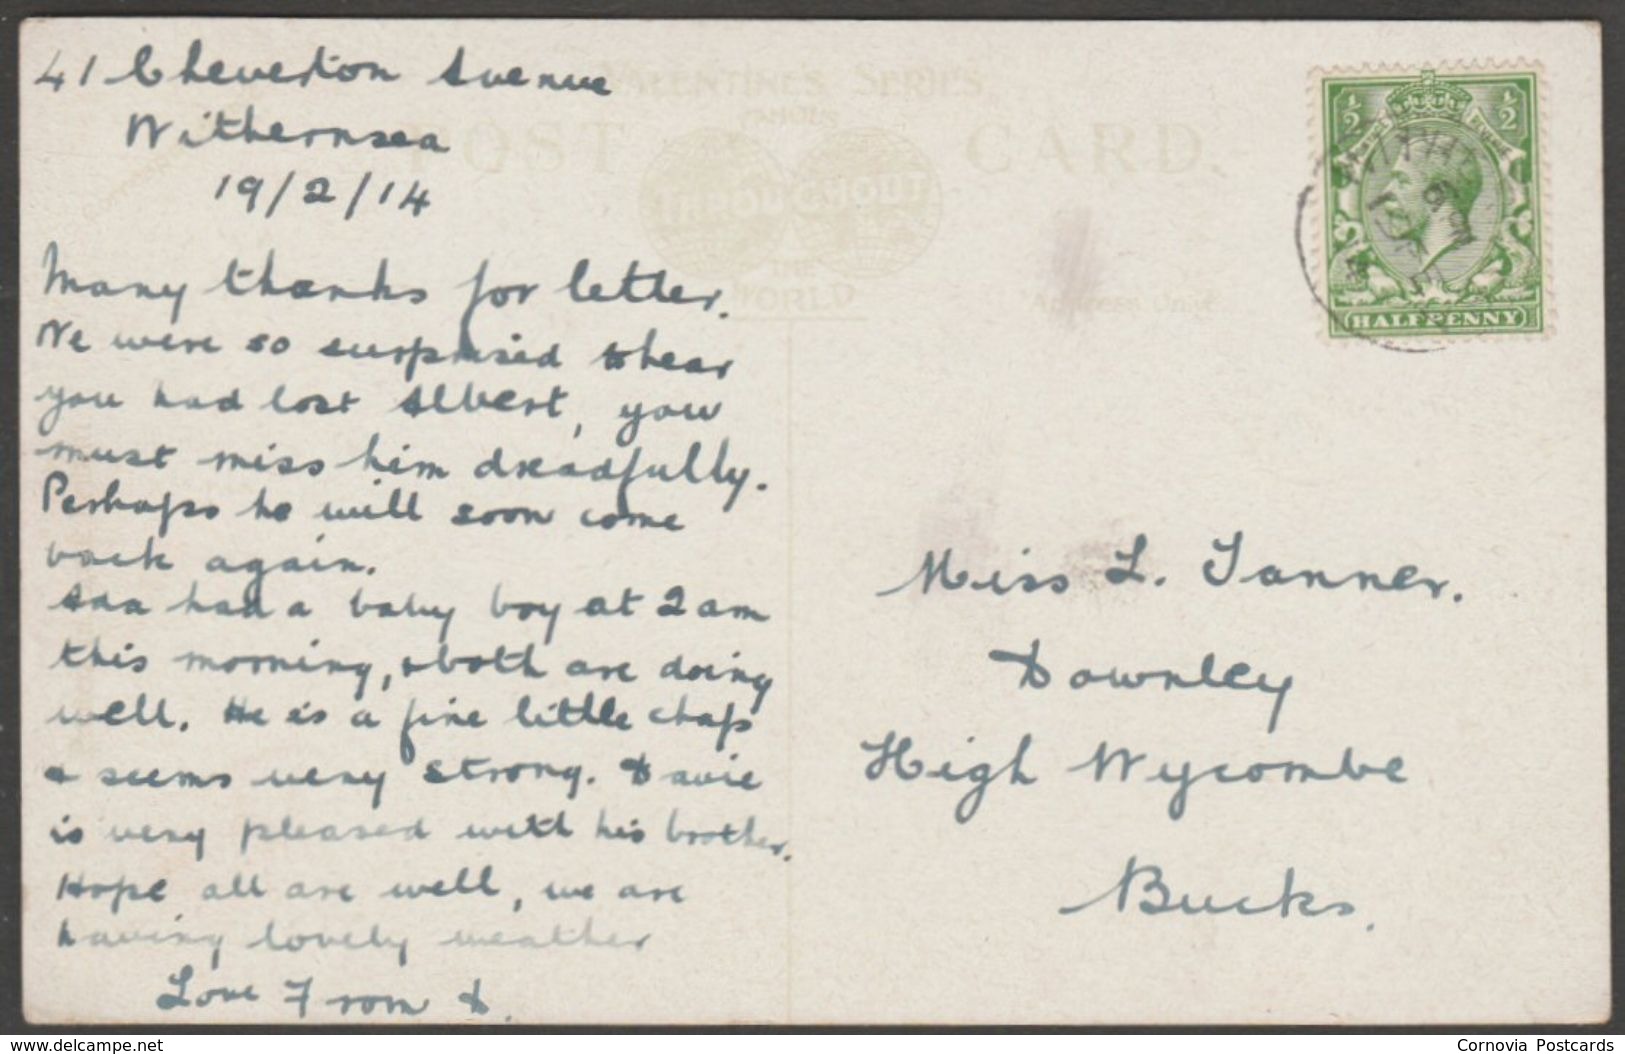 41 Cheverton Avenue
Withernsea
19/2/14
Many thanks for letter.
We were so surprised to hear
you had lost Albert, you
must miss him dreadfully.
Perhaps he will soon come
back again.
Ada had a baby boy at 2 am
this morning, & both are doing
well. He is a fine little chap
& seems very strong. Davie
is very pleased with his brother.
Hope all are well, we are
having lovely weather
Love From D.
VALENTINE'S SERIES
FAMOUS
POST CARD.
THROUGHOUT
THE
WORLD
Address Only
½ ½
HALFPENNY
Miss L. Tanner.
Downley
High Wycombe
Bucks.
www.delcampe.net
Cornovia Postcards